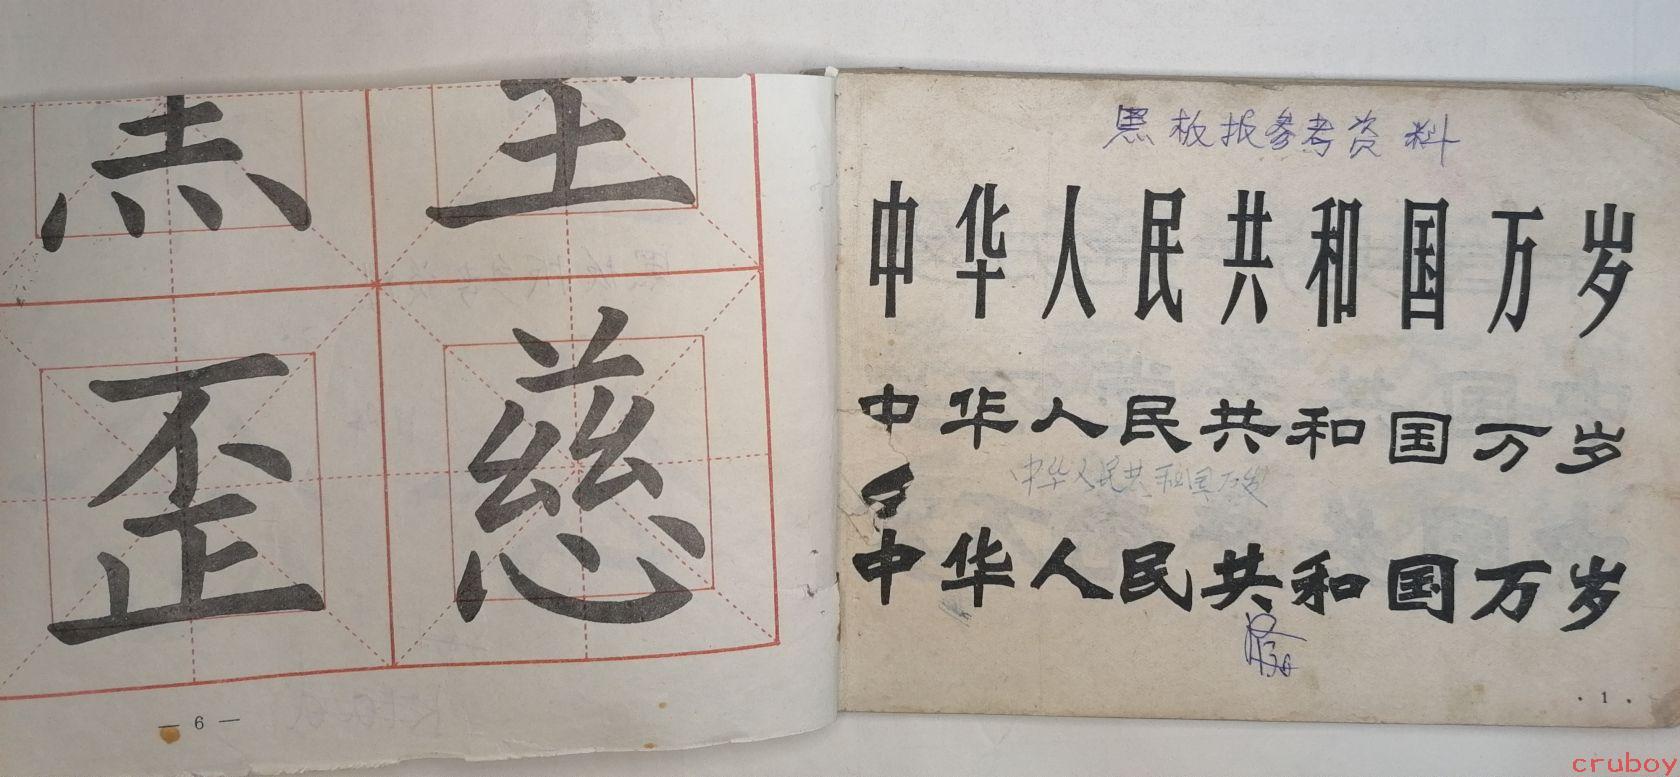 歪慈
— 6 —
黑板报参考资料
中华人民共和国万岁
中华人民共和国万岁
中华人民共和国万岁
中华人民共和国万岁
· 1 ·
cruboy